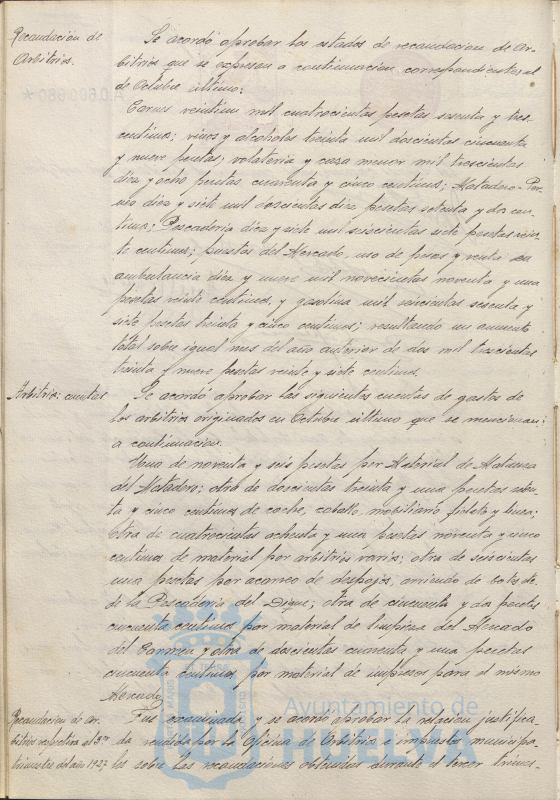 Recaudación de
Arbitrios.
Se acordó aprobar los estados de recaudacion de Ar-
bitrios que se expresan a continuacion correspondientes al
de Octubre último:
Carnes veintiun mil cuatrocientas pesetas sesenta y tres
centimos; vinos y alcoholes treinta mil doscientas cincuenta
y nueve pesetas; volateria y caza menor mil trescientas
diez y ocho pesetas cuarenta y cinco centimos; Matadero-
diez y siete mil doscientas diez pesetas setenta y dos cen-
timos; Pescaderia diez y siete mil seiscientas siete pesetas
centimos; puestos del Mercado, uso de pesas y venta en
ambulancia diez y nueve mil novecientas noventa y una
pesetas veinte centimos, y gasolina mil seiscientas sesenta y
siete pesetas treinta y cinco centimos; resultando un aumento
total sobre igual mes del año anterior de dos mil trescientas
treinta y nueve pesetas veinte y siete centimos.
Arbitrios: cuentas
Se acordó aprobar las siguientes cuentas de gastos de
los arbitrios originados en Octubre último que se mencionan
a continuacion.
Una de noventa y seis pesetas por Material de Matanza
del Matadero; otra de doscientas treinta y una pesetas
y cinco centimos de coche, caballo, mobiliario
otra de cuatrocientas ochenta y una pesetas noventa y cinco
centimos de material por arbitrios varios; otra de seiscientas
una pesetas por acarreo de despojos, arriendo de botes de
de la Pescaderia del Dique; otra de cincuenta y dos pesetas
cincuenta centimos por material de limpieza del Mercado
del Carmen y otra de doscientas cuarenta y una pesetas
cincuenta centimos por material de impresos para el mismo
Mercado.
Recaudacion de ar-
bitrios respectiva al 3er
trimestre del año 1927
Fue examinada y se acordó aprobar la relacion justifica-
da rendida por la Oficina de Arbitrios e impuestos municipa-
les sobre las recaudaciones obtenidas durante el tercer trimes-
Ayuntamiento de
HUELVA